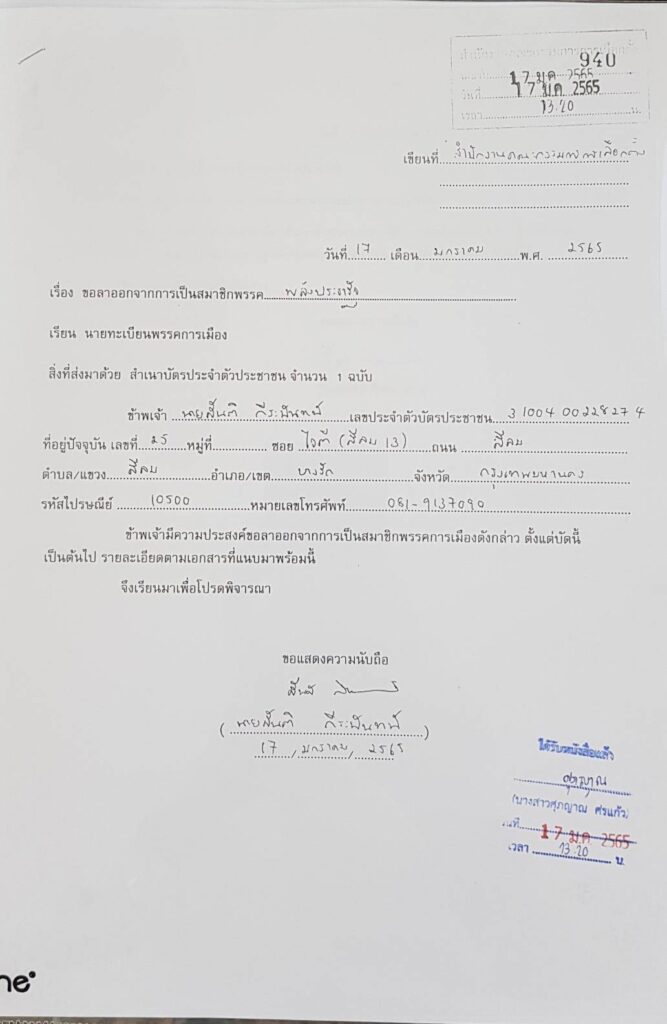 940
17 ม.ค. 2565
วันที่ 17 ม.ค. 2565
เวลา 13.20 น.
เขียนที่ สำนักงานคณะกรรมการการเลือกตั้ง
วันที่ 17 เดือน มกราคม พ.ศ. 2565
เรื่อง ขอลาออกจากการเป็นสมาชิกพรรค พลังประชารัฐ
เรียน นายทะเบียนพรรคการเมือง
สิ่งที่ส่งมาด้วย สำเนาบัตรประจำตัวประชาชน จำนวน 1 ฉบับ
ข้าพเจ้า นายสันติ กีระนันทน์ เลขประจำตัวบัตรประชาชน 3 1004 0022827 4
ที่อยู่ปัจจุบัน เลขที่ 25 หมู่ที่ ซอย (สีลม 13) ถนน สีลม
ตำบล/แขวง สีลม อำเภอ/เขต บางรัก จังหวัด กรุงเทพมหานคร
รหัสไปรษณีย์ 10500 หมายเลขโทรศัพท์ 081-9137090
ข้าพเจ้ามีความประสงค์ขอลาออกจากการเป็นสมาชิกพรรคการเมืองดังกล่าว ตั้งแต่บัดนี้
เป็นต้นไป รายละเอียดตามเอกสารที่แนบมาพร้อมนี้
จึงเรียนมาเพื่อโปรดพิจารณา
ขอแสดงความนับถือ
( นายสันติ กีระนันทน์ )
17 / มกราคม / 2565
ได้รับหนังสือแล้ว
(นางสาวศุภญาณ ศรแก้ว)
วันที่ 17 ม.ค. 2565
เวลา 13.20 น.
ne